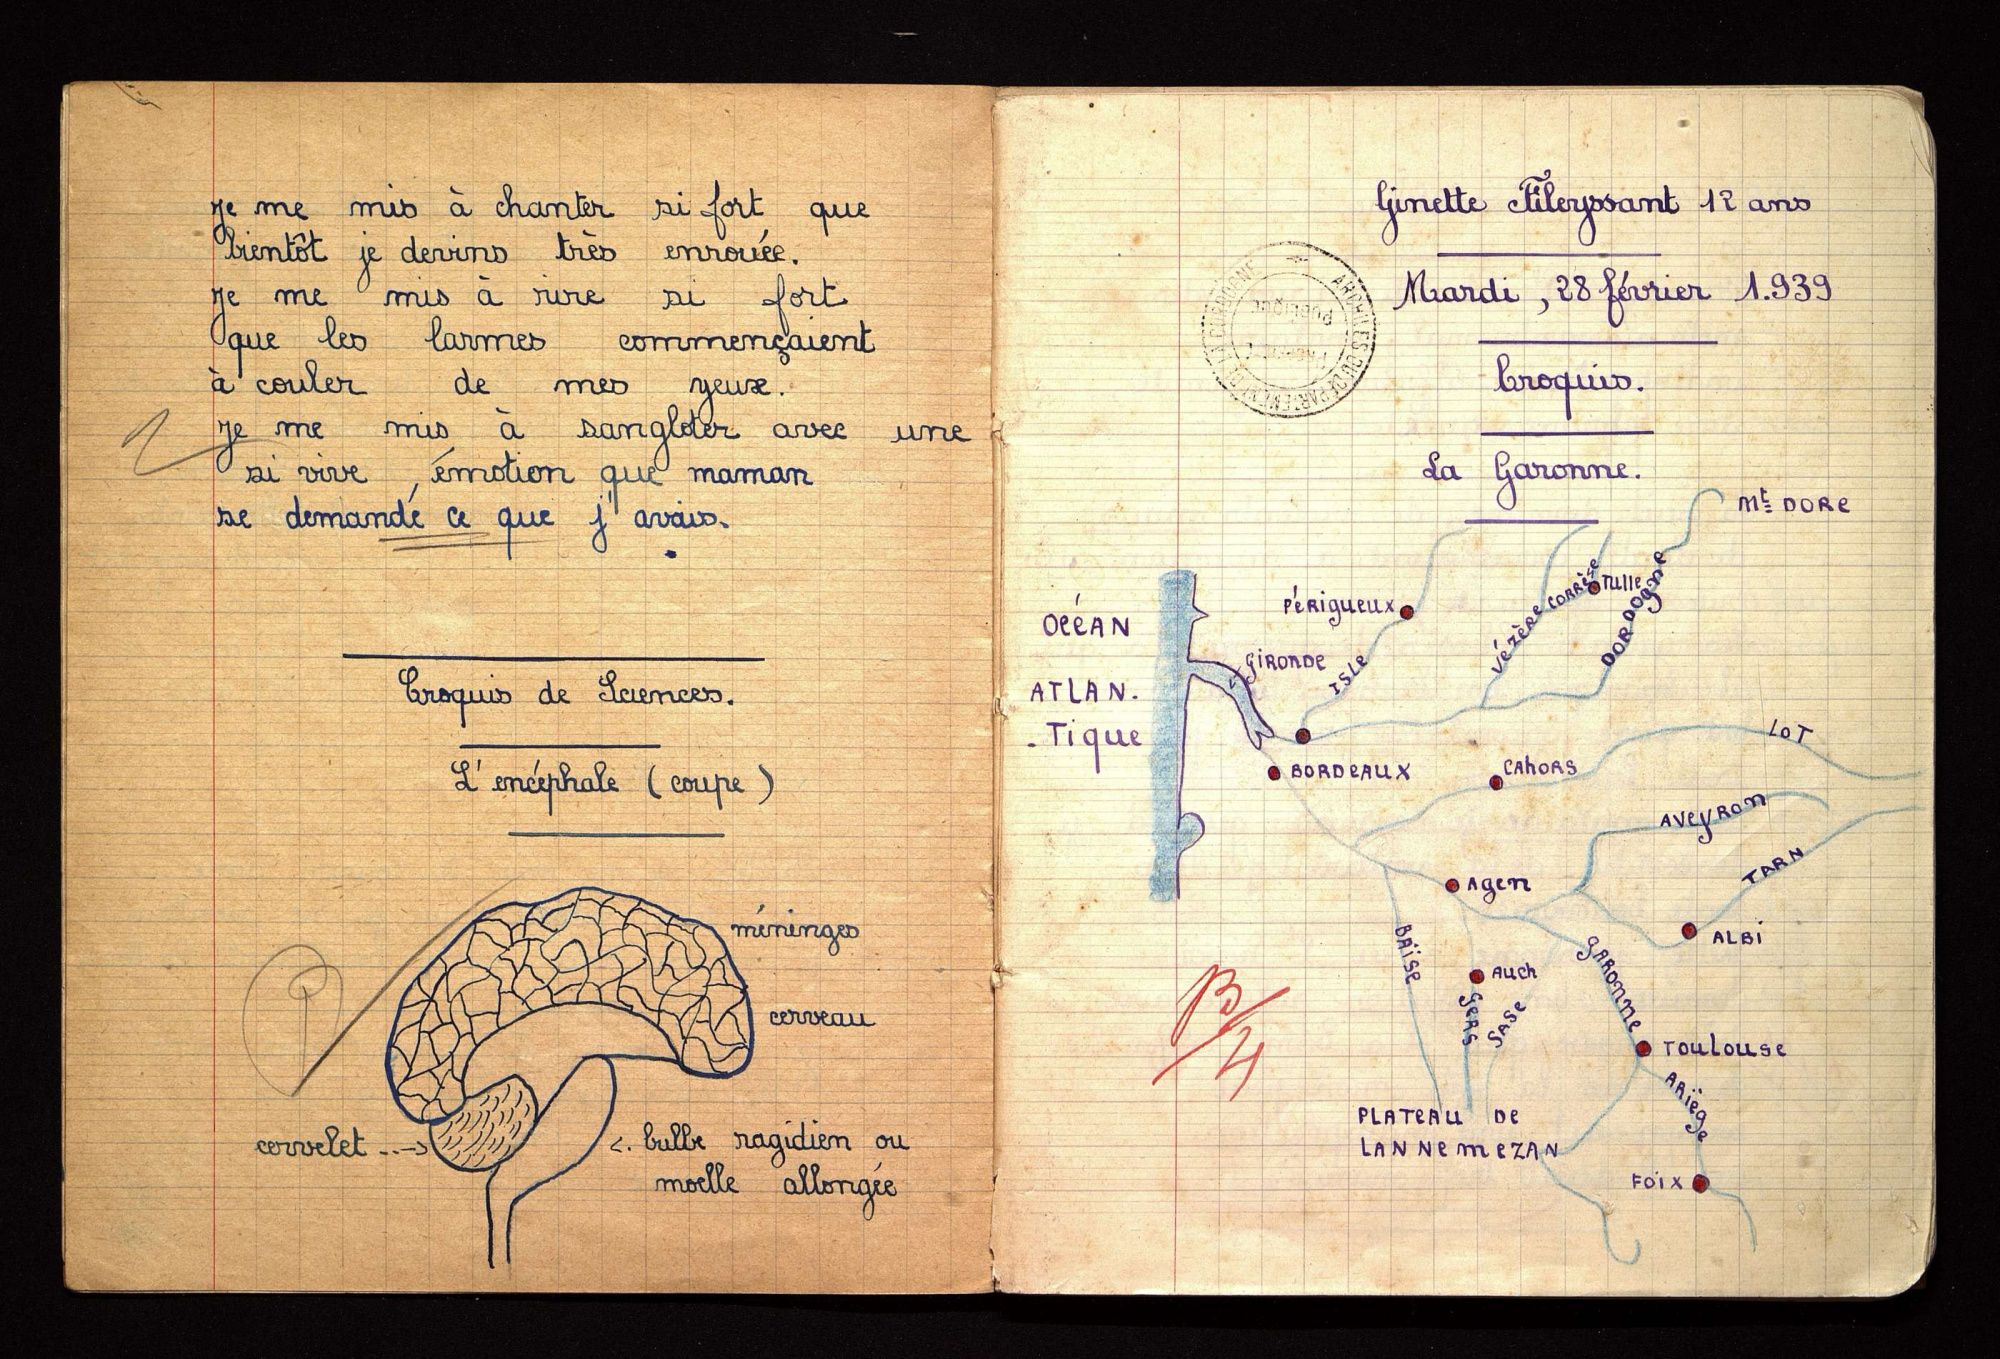 je me mis à chanter si fort que
bientôt je devins très enrouée.
je me mis à rire si fort
que les larmes commençaient
à couler de mes yeux.
je me mis à sangloter avec une
si vive, émotion que maman
se demandé ce que j'avais.
Croquis de Sciences.
L'encéphale (coupe)
méninges
cerveau
cervelet
bulbe ragidien ou
moelle allongée
Ginette 12 ans
Mardi, 28 février 1.939
ARCHIVES DU DÉPARTEMENT DE LA DORDOGNE
Croquis.
La Garonne.
Mt DORE
OCÉAN
ATLAN-
-Tique
PÉRigueux
Tulle
CORRÈSE
VÉZÈRE
DORDOgne
giRONDE
iSLe
BORDeAUX
LOT
CAhORS
AVeyRon
TARN
Agen
ALBi
BAïSe
gARONNe
Auch
geRS
SASe
B/4
TOuLOuse
ARiège
PLATeAu De
LANNemeZAN
FOiX